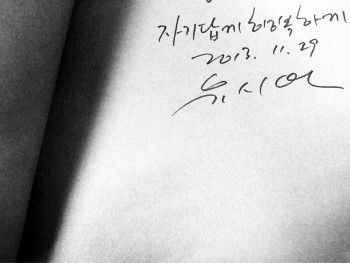 자기답게 행복하게
2013. 11. 29
유시민